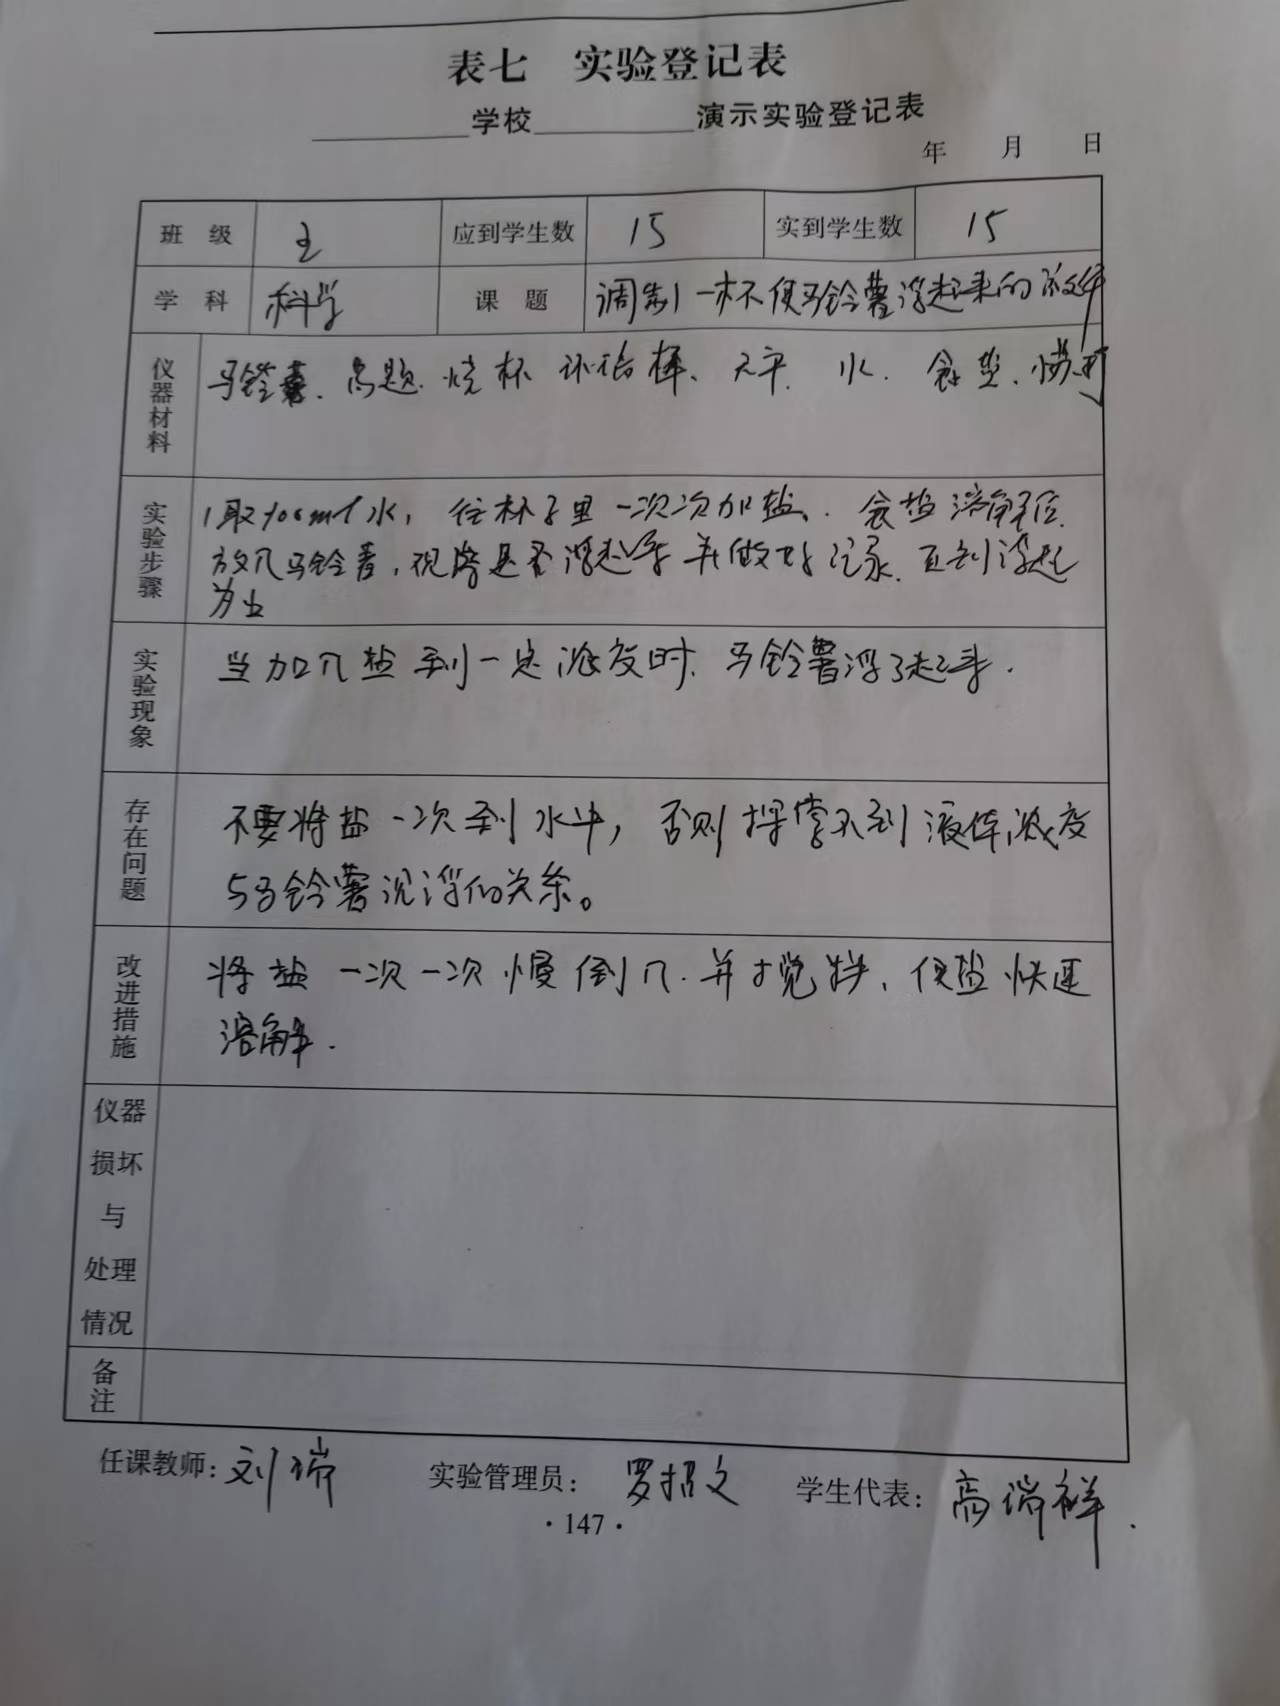 表七 实验登记表
学校 演示实验登记表
年 月 日
班级 五 应到学生数 15 实到学生数 15
学科 科学 课题 调制一杯使马铃薯浮起来的液体
仪器材料 马铃薯、烧杯 玻璃棒、天平、水、食盐、
实验步骤 1取 水，往杯子里一次次加盐、食盐溶解后、
放入马铃薯，观察是否浮起来并做好记录、直到浮起
为止
实验现象 当加入盐到一定浓度时、马铃薯浮了起来.
存在问题 不要将盐一次到水中，否则探索不到液体浓度
与马铃薯沉浮的关系。
改进措施 将盐一次一次慢倒入.并搅拌、使盐快速
溶解.
仪器
损坏
与
处理
情况
备注
任课教师：刘瑞 实验管理员：罗招文 学生代表：高瑞祥.
·147·